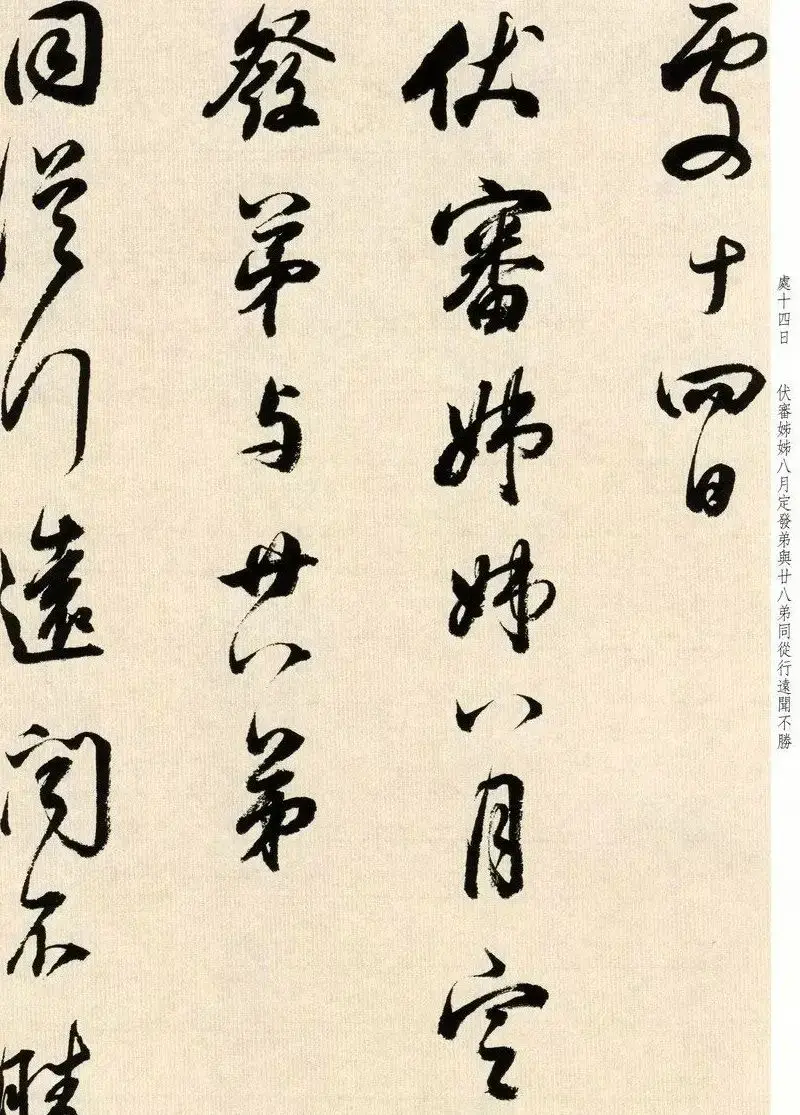 處十四日
伏審姊姊八月定
發弟与廿八弟
同從行遠聞不勝
處十四日　伏審姊姊八月定發弟與廿八弟同從行遠聞不勝